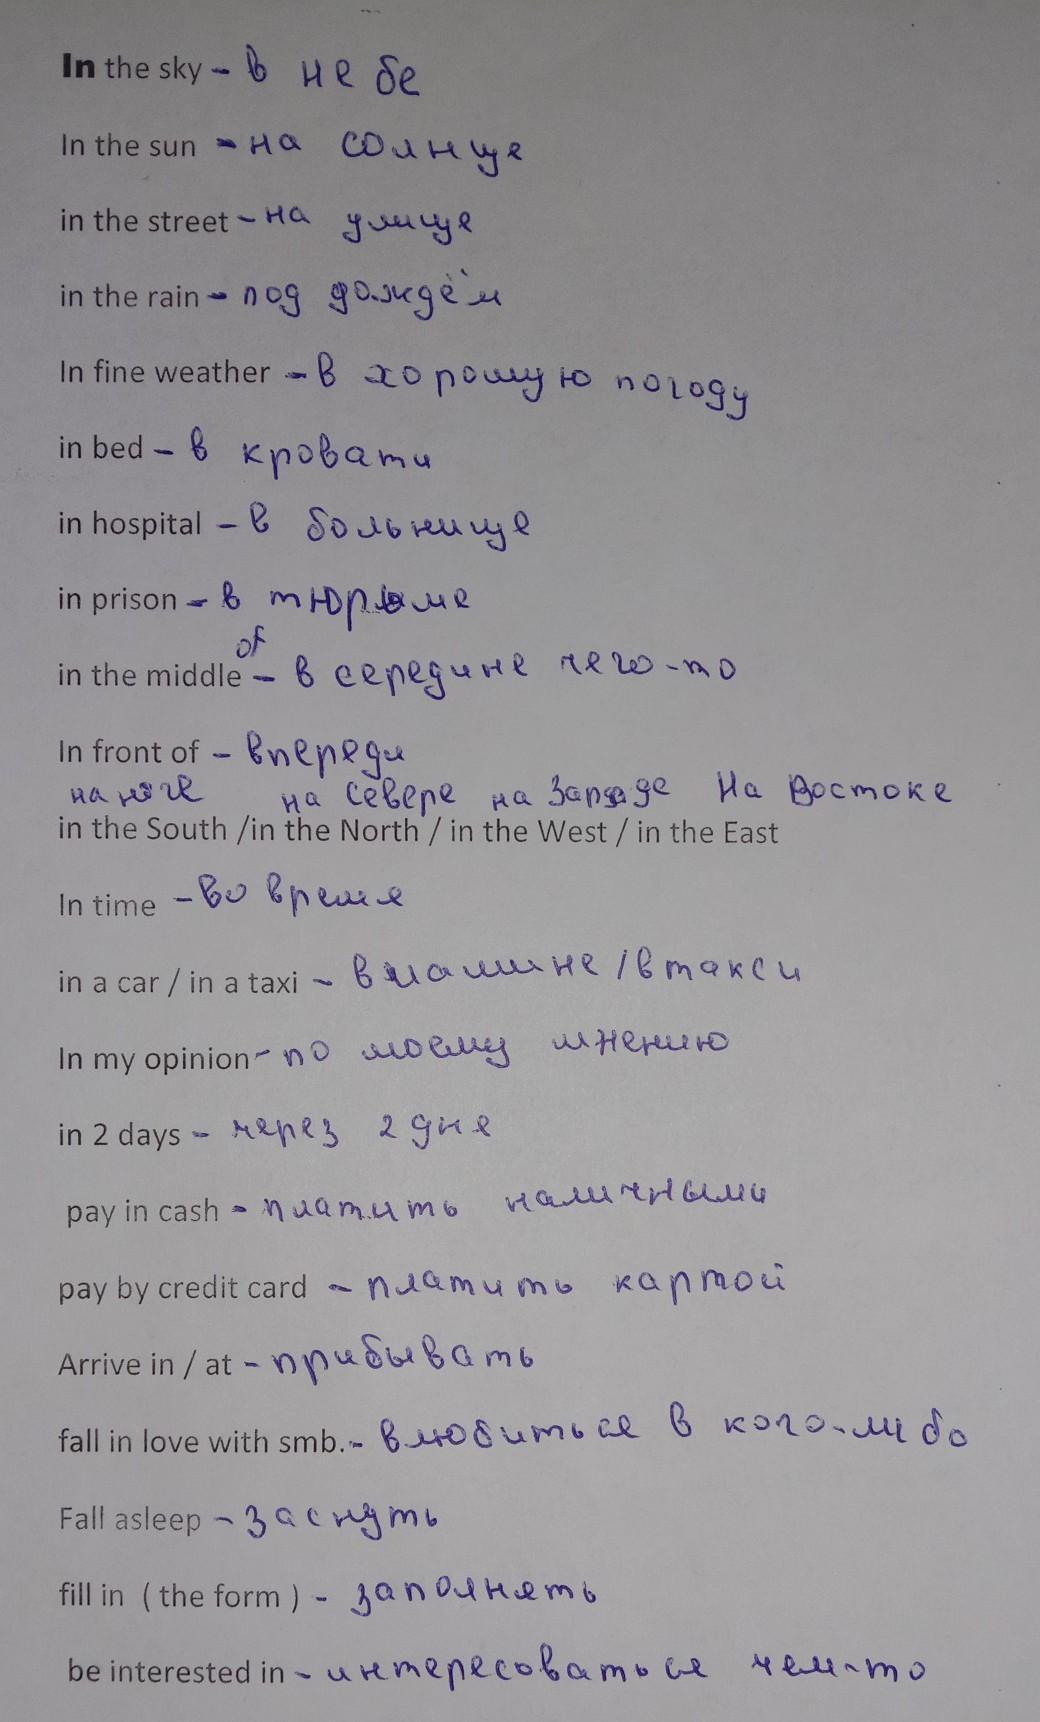 In the sky - в небе
In the sun - на солнце
in the street - на улице
in the rain - под дождём
In fine weather - в хорошую погоду
in bed - в кровати
in hospital - в больнице
in prison - в тюрьме
of
in the middle - в середине чего-то
In front of - впереди
на юге на севере на Западе На Востоке
in the South /in the North / in the West / in the East
In time - во время
in a car / in a taxi - в машине / в такси
In my opinion - по моему мнению
in 2 days - через 2 дня
pay in cash - платить наличными
pay by credit card - платить картой
Arrive in / at - прибывать
fall in love with smb. - влюбиться в кого-либо
Fall asleep - заснуть
fill in ( the form ) - заполнять
be interested in - интересоваться чем-то